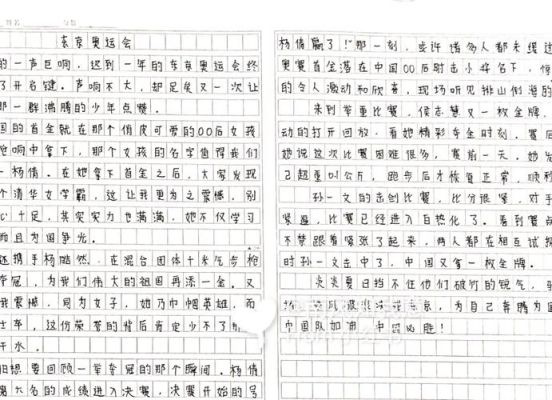 东京奥运会
的一声巨响，迟到一年的东京奥运会终
了开启键。声响不大，却足矣又一次让
那一群沸腾的少年点燃。
国的首金就在那个俏皮可爱的00后女孩
枪响中拿下，那个女孩的名字值得我们
—杨倩。在她拿下首金之后，大家发现
个清华女学霸，这让我更为之震撼，别
心十足，其实实力也满满，她不仅学习
而且为国争光。
还携手杨皓然，在混合团体十米气步枪
夺冠，为我们伟大的祖国再添一金。又
我震撼，同为女子，她乃巾帼英雄，而
士卒，这份荣誉的背后肯定少不了
汗水。
旧想要回顾一举夺冠的那个瞬间。杨倩
第六名的成绩进入决赛，决赛开始的号
杨倩赢了！"那一刻，或许诸多人都未缓过
奥赛首金落在中国00后射击小将名下，惊
的令人激动和欣喜，现场听见排山倒海的
来到举重比赛，侯志慧又一枚金牌。
动的打开回放，看她精彩夺金时刻。赛后
她说这次比赛困难很多，赛前一天，她发
己超重叫公斤，跑步后才恢复正常，顺利
孙一文的击剑比赛，比分很紧，对手
紧逼，比赛已经进入白热化了。看到赛点
不禁跟着紧张了起来，两人都在相互试探
时孙一文击中了，中国又拿一枚金牌。
炎炎夏日挡不住他们破竹的锐气，
京，为自己奔腾为国
中国队加油，中国必胜！